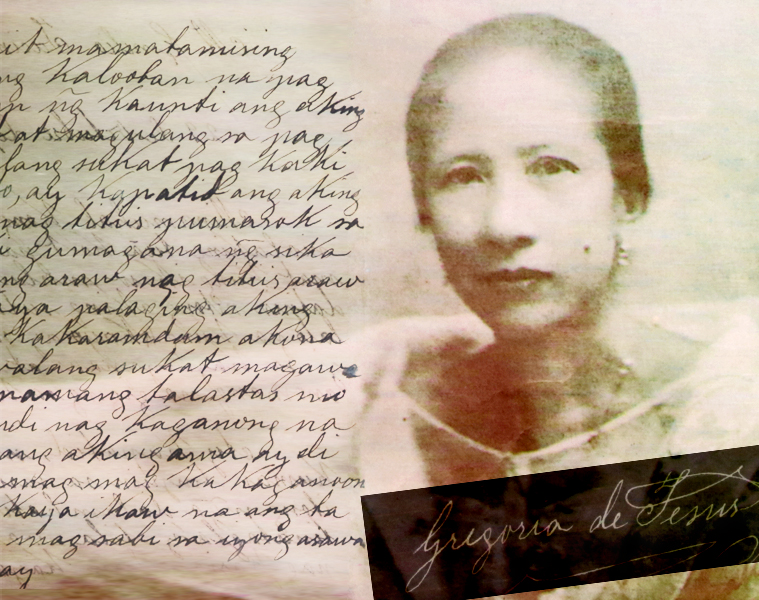 it mamatamising
ng Kalooban na pag
ñg Kaunti ang aking
at magulang sa pag
lang sukat pag
o, ay kapatid ang aking
nag titiis pumasok sa
gumagana ñg suka
ng araw nag titiis araw
palaging aking
Kakaramdam akona
walang sukat magawa
namang talastas mo
di nag Kaganong na
ang aking ama ay di
mag mag Kakaganoon
Kaya ikaw na ang ba
mag sabi sa iyong asawa
ay
Gregoria de Jesus